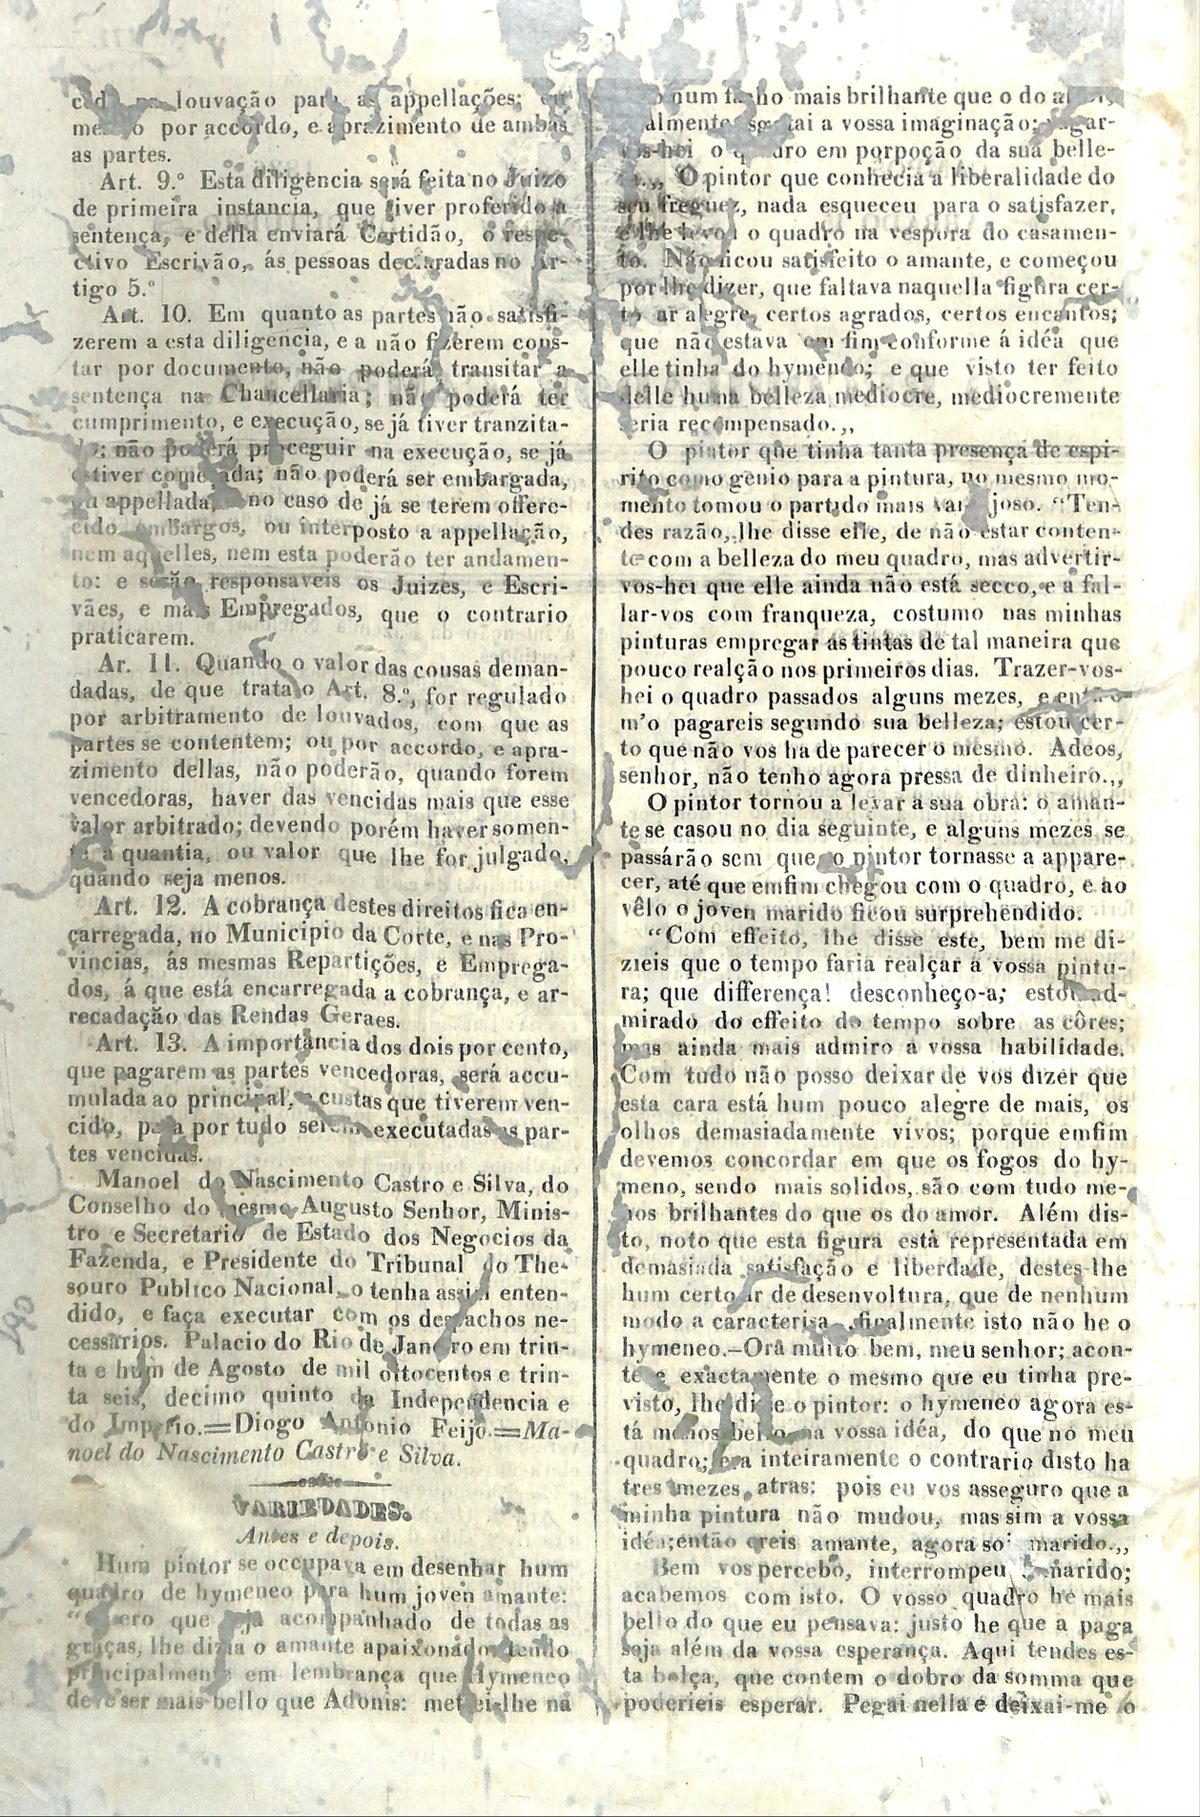 2
louvação para as appellações; ou
mesmo por accordo, e aprazimento de ambas
as partes.
Art. 9.º Esta diligencia será feita no Juizo
de primeira instancia, que tiver proferido a
sentença, e della enviará Certidão, o respe-
ctivo Escrivão, ás pessoas declaradas no Ar-
tigo 5.º
Art. 10. Em quanto as partes não satisfi-
zerem a esta diligencia, e a não fizerem cons-
tar por documento, não poderá transitar a
sentença na Chancellaria; não poderá ter
cumprimento, e execução, se já tiver tranzita-
do; não poderá proceguir na execução, se já
estiver começada; não poderá ser embargada,
ou appellada, e no caso de já se terem offere-
cido embargos, ou interposto a appellação,
nem aquelles, nem esta poderão ter andamen-
to: e serão responsaveis os Juizes, e Escri-
vães, e mais Empregados, que o contrario
praticarem.
Ar. 11. Quando o valor das cousas deman-
dadas, de que trata o Art. 8.º, for regulado
por arbitramento de louvados, com que as
partes se contentem; ou por accordo, e apra-
zimento dellas, não poderão, quando forem
vencedoras, haver das vencidas mais que esse
valor arbitrado; devendo porém haver somen-
te a quantia, ou valor que lhe for julgado,
quando seja menos.
Art. 12. A cobrança destes direitos fica en-
çarregada, no Municipio da Corte, e nas Pro-
vincias, ás mesmas Repartições, e Emprega-
dos, á que está encarregada a cobrança, e ar-
recadação das Rendas Geraes.
Art. 13. A importancia dos dois por cento,
que pagarem as partes vencedoras, será accu-
mulada ao principal, e custas que tiverem ven-
cido, para por tudo serem executadas as par-
tes vencidas.
Manoel do Nascimento Castro e Silva, do
Conselho do mesmo Augusto Senhor, Minis-
tro e Secretario de Estado dos Negocios da
Fazenda, e Presidente do Tribunal do The-
souro Publico Nacional, o tenha assim enten-
dido, e faça executar com os despachos ne-
cessarios. Palacio do Rio de Janeiro em trin-
ta e hum de Agosto de mil oitocentos e trin-
ta seis, decimo quinto da Independencia e
do Imperio.=Diogo Antonio Feijó.=Ma-
noel do Nascimento Castro e Silva.
VARIEDADES.
Antes e depois.
Hum pintor se occupava em desenhar hum
quadro de hymeneo para hum joven amante:
"Quero que seja acompanhado de todas as
graças, lhe dizia o amante apaixonado, tendo
principalmente em lembrança que Hymeneo
deve ser mais bello que Adonis: mettei-lhe na
mão hum facho mais brilhante que o do amor,
finalmente esgotai a vossa imaginação; pagar-
vos-hei o quadro em porpoção da sua belle-
za.,, O pintor que conhecia a liberalidade do
seu freguez, nada esqueceu para o satisfazer,
e lhe levou o quadro na vespora do casamen-
to. Não ficou satisfeito o amante, e começou
por lhe dizer, que faltava naquella figura cer-
to ar alegre, certos agrados, certos encantos;
que não estava em fim conforme á idéa que
elle tinha do hymeneo; e que visto ter feito
delle huma belleza mediocre, mediocremente
seria recompensado.,,
O pintor que tinha tanta presença de espi-
rito como genio para a pintura, no mesmo mo-
mento tomou o partido mais vantajoso. "Ten-
des razão, lhe disse elle, de não estar conten-
te com a belleza do meu quadro, mas advertir-
vos-hei que elle ainda não está secco, e a fal-
lar-vos com franqueza, costumo nas minhas
pinturas empregar as tintas de tal maneira que
pouco realção nos primeiros dias. Trazer-vos-
hei o quadro passados alguns mezes, e então
m'o pagareis segundo sua belleza; estou cer-
to que não vos ha de parecer o mesmo. Adeos,
senhor, não tenho agora pressa de dinheiro.,,
O pintor tornou a levar a sua obra: o aman-
te se casou no dia seguinte, e alguns mezes se
passárão sem que o pintor tornasse a appare-
cer, até que emfim chegou com o quadro, e ao
vêlo o joven marido ficou surprehendido.
"Com effeito, lhe disse este, bem me di-
zieis que o tempo faria realçar a vossa pintu-
ra; que differença! desconheço-a; estou ad-
mirado do effeito do tempo sobre as côres;
mas ainda mais admiro a vossa habilidade.
Com tudo não posso deixar de vos dizer que
esta cara está hum pouco alegre de mais, os
olhos demasiadamente vivos; porque emfim
devemos concordar em que os fogos do hy-
meno, sendo mais solidos, são com tudo me-
nos brilhantes do que os do amor. Além dis-
to, noto que esta figura está representada em
demasiada satisfação e liberdade, destes-lhe
hum certo ar de desenvoltura, que de nenhum
modo a caracterisa, finalmente isto não he o
hymeneo.—Ora muito bem, meu senhor; acon-
tece exactamente o mesmo que eu tinha pre-
visto, lhe disse o pintor: o hymeneo agora es-
tá menos bello na vossa idéa, do que no meu
quadro; era inteiramente o contrario disto ha
tres mezes atras: pois eu vos asseguro que a
minha pintura não mudou, mas sim a vossa
idéa; então ereis amante, agora sois marido.,,
Bem vos percebo, interrompeu o marido;
acabemos com isto. O vosso quadro he mais
bello do que eu pensava: justo he que a paga
seja além da vossa esperança. Aqui tendes es-
ta bolça, que contem o dobro da somma que
poderieis esperar. Pegai nella e deixai-me o